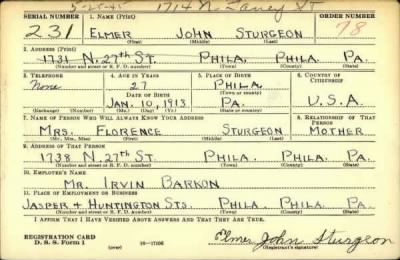 5-26-45 1714 N. Taney St
SERIAL NUMBER 1. NAME (Print) ORDER NUMBER
231 ELMER JOHN STURGEON 78
(First) (Middle) (Last)
2. ADDRESS (Print)
1731 N. 27th ST. PHILA. PHILA. PA.
(Number and street or R. F. D. number) (Town) (County) (State)
3. TELEPHONE 4. AGE IN YEARS 5. PLACE OF BIRTH 6. COUNTRY OF CITIZENSHIP
None 27 PHILA.
DATE OF BIRTH (Town or county)
JAN. 10, 1913 PA. U.S.A.
(Exchange) (Number) (Mo.) (Day) (Yr.) (State or country)
7. NAME OF PERSON WHO WILL ALWAYS KNOW YOUR ADDRESS 8. RELATIONSHIP OF THAT PERSON
MRS. FLORENCE STURGEON MOTHER
(Mr., Mrs., Miss) (First) (Middle) (Last)
9. ADDRESS OF THAT PERSON
1738 N. 27th ST. PHILA. PHILA. PA.
(Number and street or R. F. D. number) (Town) (County) (State)
10. EMPLOYER'S NAME
MR. IRVIN BARKON
11. PLACE OF EMPLOYMENT OR BUSINESS
JASPER + HUNTINGTON STS. PHILA. PHILA. PA.
(Number and street or R. F. D. number) (Town) (County) (State)
I AFFIRM THAT I HAVE VERIFIED ABOVE ANSWERS AND THAT THEY ARE TRUE.
REGISTRATION CARD
D. S. S. Form 1 (over) Elmer John Sturgeon
(Registrant's signature)